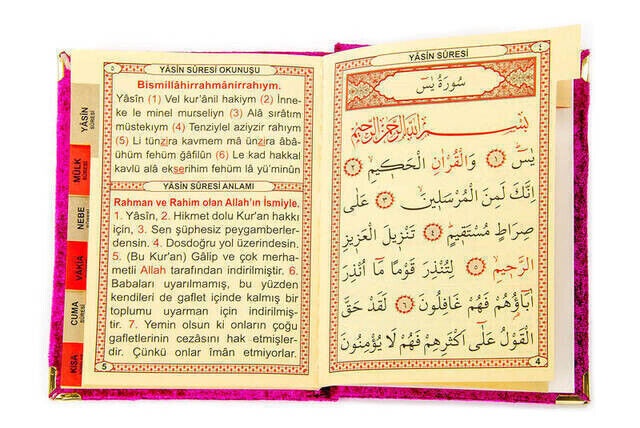 YÂSİN SÛRESİ OKUNUŞU
Bismillâhirrahmânirrahıym.
Yâsîn (1) Vel kur'ânil hakiym (2) İnne-
ke le minel murseliyn (3) Alâ sırâtım
müstekıym (4) Tenziylel aziyzir rahıym
(5) Li tünzira kavmem mâ ünzira âbâ-
ühüm fehüm ğâfilûn (6) Le kad hakkal
kavlü alâ ekserihim fehüm lâ yü'minûn
YÂSİN SÛRESİ ANLAMI
Rahman ve Rahim olan Allah'ın İsmiyle.
1. Yâsîn, 2. Hikmet dolu Kur'an hakkı
için, 3. Sen şüphesiz peygamberler-
densin. 4. Dosdoğru yol üzerindesin.
5. (Bu Kur'an) Gâlip ve çok merha-
metli Allah tarafından indirilmiştir. 6.
Babaları uyarılmamış, bu yüzden
kendileri de gaflet içinde kalmış bir
toplumu uyarman için indirilmiş-
tir. 7. Yemin olsun ki onların çoğu
gafletlerinin cezâsını hak etmişler-
dir. Çünkü onlar îmân etmiyorlar.
5
YÂSİN SÛRESİ
MÜLK SÛRESİ
NEBE SÛRESİ
VAKIA
CUMA SÛRESİ
KISA
YÂSİN SÛRESİ
٤
سُورَةُ يٰسٓ
بِسْمِ اللّٰهِ الرَّحْمٰنِ الرَّحِيمِ
يٰسٓ ﴿١﴾ وَالْقُرْاٰنِ الْحَكِيمِ ﴿٢﴾
اِنَّكَ لَمِنَ الْمُرْسَلِينَ ﴿٣﴾ عَلٰى
صِرَاطٍ مُسْتَقِيمٍ ﴿٤﴾ تَنْزِيلَ الْعَزِيزِ
الرَّحِيمِ ﴿٥﴾ لِتُنْذِرَ قَوْمًا مَٓا اُنْذِرَ
اٰبَٓاؤُهُمْ فَهُمْ غَافِلُونَ ﴿٦﴾ لَقَدْ حَقَّ
الْقَوْلُ عَلٰٓى اَكْثَرِهِمْ فَهُمْ لَا يُؤْمِنُونَ
4